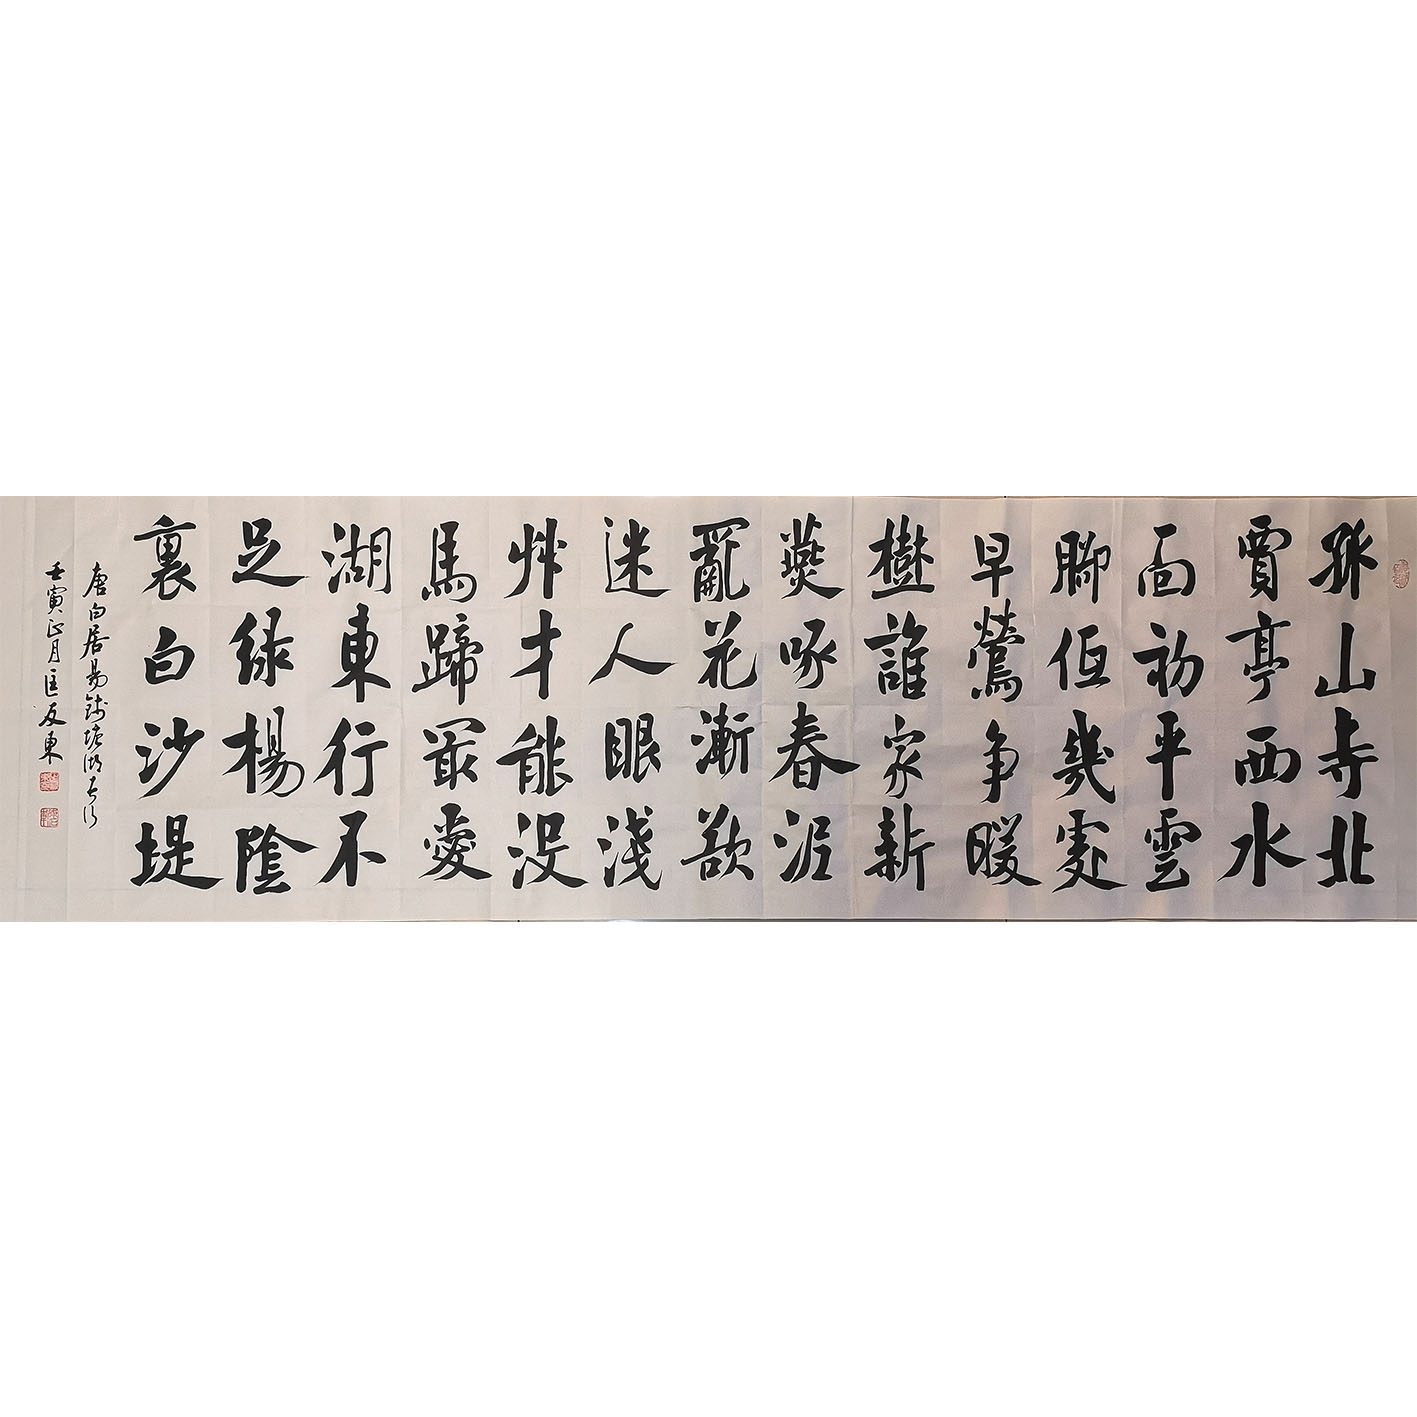 孤山寺北
賈亭西水
面初平雲
脚低幾處
早鶯争暖
樹誰家新
燕啄春泥
亂花漸欲
迷人眼淺
艸才能没
馬蹄最愛
湖東行不
足緑楊陰
裏白沙堤
唐白居易錢塘湖春行
壬寅正月匡友東